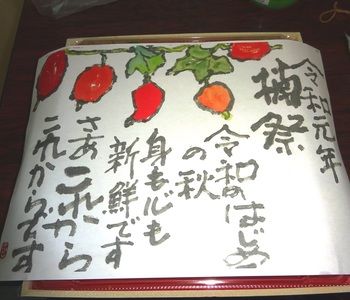 令和元年
楠祭
令和のはじめ
の秋
身も心も
新鮮です
さあこれから
これからです